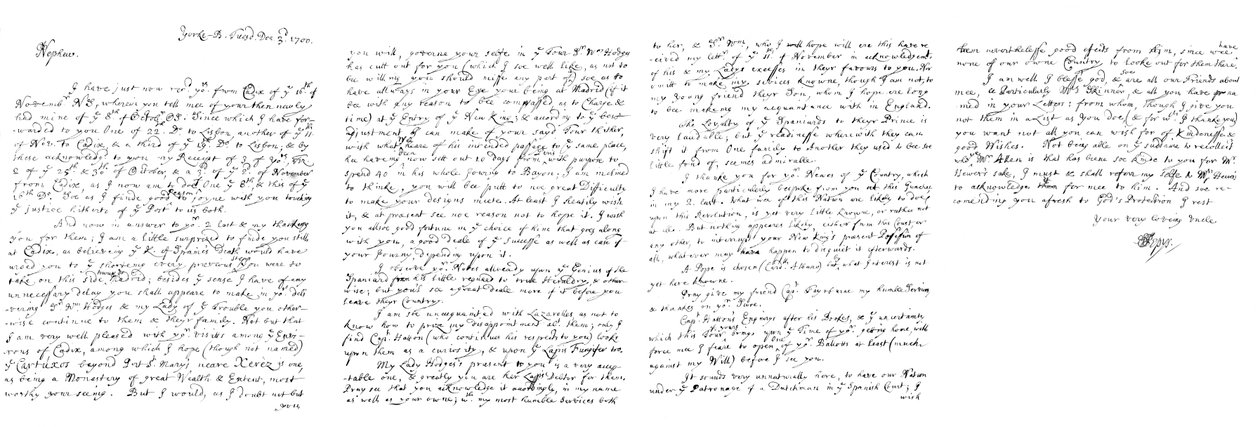 Yorke-B. Tuesd. Dec 3d. 1700.
Nephew.
I have just now yor. from Cadix of ye 16th of
Novemb. N.S., wherein you tell mee of your then newly
had mine of ye 8th of Octob. O.S. Since which I have for-
warded to you One of 22. Do to Lisbon, another of ye
of Nov. to Cadix, & a third of ye Do to Lisbon; & by
these acknowledge to you my Receipt of 2 of yors,
of ye 25th & 30th of October, & a 3d of ye of November
from Cadix, as I now am to doe One ye 8th & this of ye
16th Do. Soe as I finde good Reason to joyne with you touching
ye justice hitherto of ye Post to us both.
And now in answer to yor 2 last & my thanking
you for them; I am a little surprized to finde you still
at Cadix, as believing ye K. of Spain's Death would have
urged you to ye shortning every previous Step You were to
take on this side Madrid; besides ye sense I have of any
unnecessary delay you shall appeare to make in yor deli-
vering Sr. Wm. Hodges & my Lady of ye Trouble you other-
wise continue to them & theyr family. Not but that
I am very well pleased with yor visits among ye Envi-
rons of Cadix, among which I hope (though not named)
ye Cartuxos beyond Port S. Mary, neare Xerez is one,
as being a Monastery of great Wealth & Extent, most
worthy your seeing. But I would, as I doubt not but
you
you will, governe your selfe in ye Tour Sr. Wm. Hodges
has cutt out for you (which I soe well like, as not to
be willing you should misse any part of) soe as to
have allways in your Eye your being at Madrid (if it
bee with any reason to bee compassed, as to Charge &
time) at ye Entry of ye New King; & according to ye best
adjustment I can make of your sayd Tour thither,
with what I heare of his intended passage to ye same place,
hee haveing now sett out 10 days from, with purpose to
spend 40 in his whole Journy to Bayon; I am inclined
to thinke, you will bee putt to noe great Difficulty
to make your designs meete. At least I heartily wish
it, & at present see noe reason not to hope it. I wish
you alsoe good fortune in ye choice of time that goes along
with you, a good deale of ye successe as well as ease of
your Journy depending upon it.
I observe yor. Notes already upon ye Genius of the
Spaniard from his little regard to true Heraldry, & other-
wise; but you'l see a great deale more of it before you
leave theyr Country.
I am soe unacquainted with Lazarellos as not to
know how to prize my disappointmt in them; only I
find Capt. Hatton (who continues his respects to you) looks
upon them as a curiosity, & upon ye Lapis Fungifer too.
My Lady Hodges's present to you is a very accep-
table one, & greatly you are her Debter for them.
Pray see that you acknowledge it accordingly, in my name
as well as your owne; wth. my most humble Services both
to her, & Sr. Wm., who I will hope will ere this have re-
ceived my lettr. of ye 11. of November in acknowledgemt.
of his & my Lady's excesses in theyr favours to you. Nor
omitt to make my services knowne, though I am not, to
my young Friend theyr Son, whom I hope ere long
to bee make mee my acquaintance with in England.
The Loyalty of ye Spaniards to theyr Prince is
very laudable; but ye readinesse wherewith they can
shift it from One family to Another they used to bee soe
little fond of, seemes admirable.
I thank you for yor. Newes of ye Country, which
I have more particularly bespoke from you at this juncture
in my 2 last. What use of this Nation are likely to doe
upon this Revolution, is yet very little knowne, or rather not
at all. But nothing appears likely, either from this Court or
any other, to interrupt your New King's present Possession of
all, what ever may have happen to disquiet it afterwards.
A Pope is chosen (Cardl. Albano) but, what Interest is not
yet here knowne.
Pray give my friend Capt. my kindest Service
& thanks on yor. score.
Capt. Hattons Epigrape after his Dorkes, & ye uncertainty
which this Tour brings upon ye Time of yor. return home, will
force mee I feare to open of yor. Baloons at least (much
against my Will) before I see you.
It sounds very unnaturally here, to have our Nation
under ye Patronage of a Dutchman in ye Spanish Court; I
wish
them neverthelesse good efects from him, since wee have
none of our owne Country to looke out for them there.
I am well I blesse God, & soe are all our Friends about
mee, & Particularly Mrs. Skinner, & all you have na-
med in your Letters: from whom, though I give you
not them in a List as You doe (& for wch. I thanke you)
you want not all you can wish for of Kindnesse &
good Wishes. Not being able on ye suddaine to recollect
who Mr. Allen is that has beene soe kinde to you for Mr.
Bowers sake, I must & shall referr my selfe to Mr. Bowers
to acknowledge them for mee to him. And soe re-
comending you afresh to God's Protection I rest
Your very loveing Uncle
SPepys.